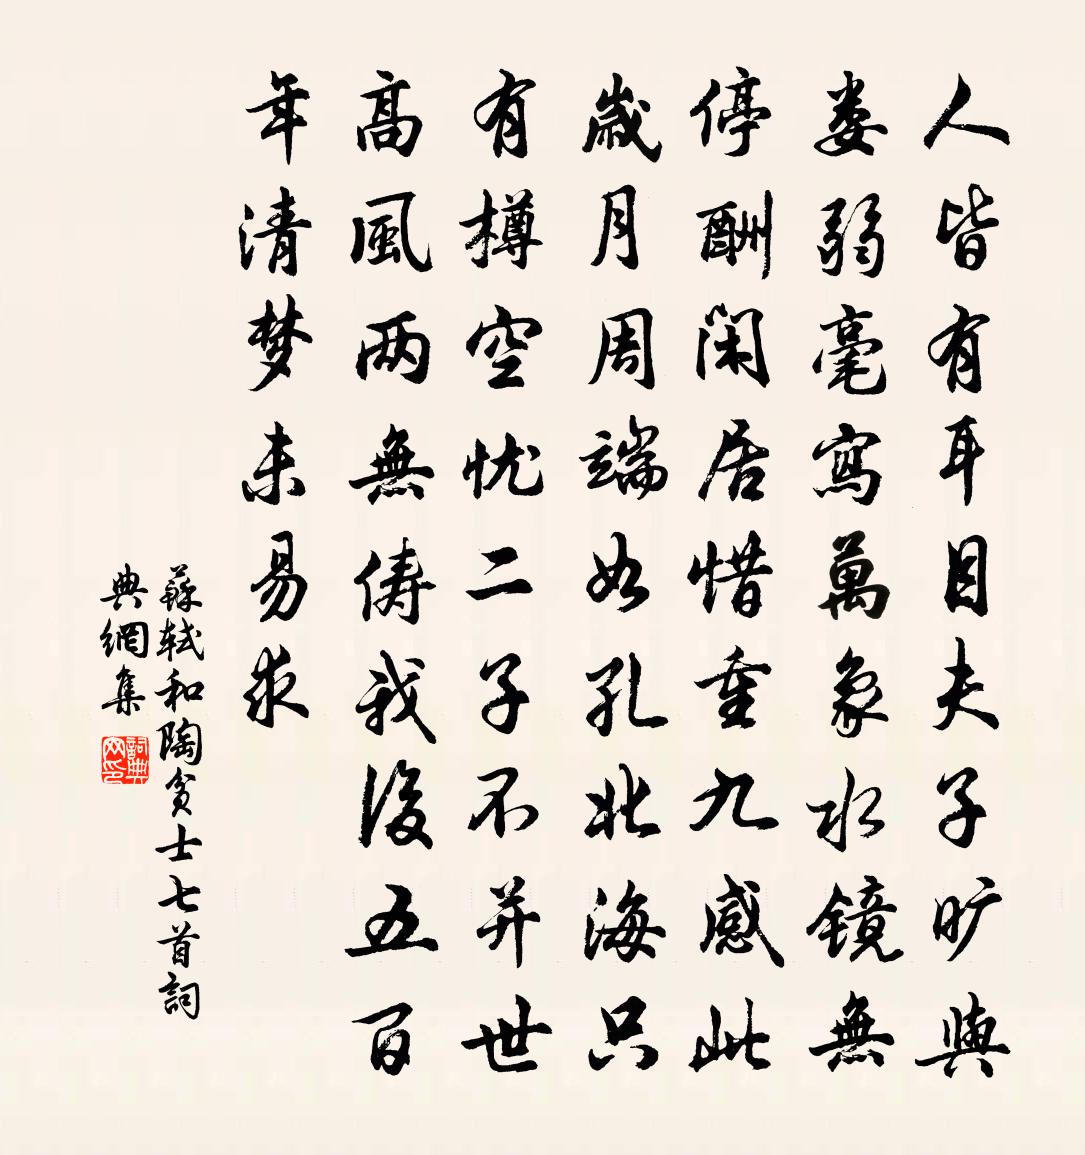 人皆有耳目夫子旷與
娄弱毫寫萬象水镜無
停酬闲居惜重九感此
歲月周端如孔北海只
有樽空忧二子不并世
高風两無俦我後五百
年清梦未易求
蘇轼和陶贫士七首詞
典網集
詞典
网印